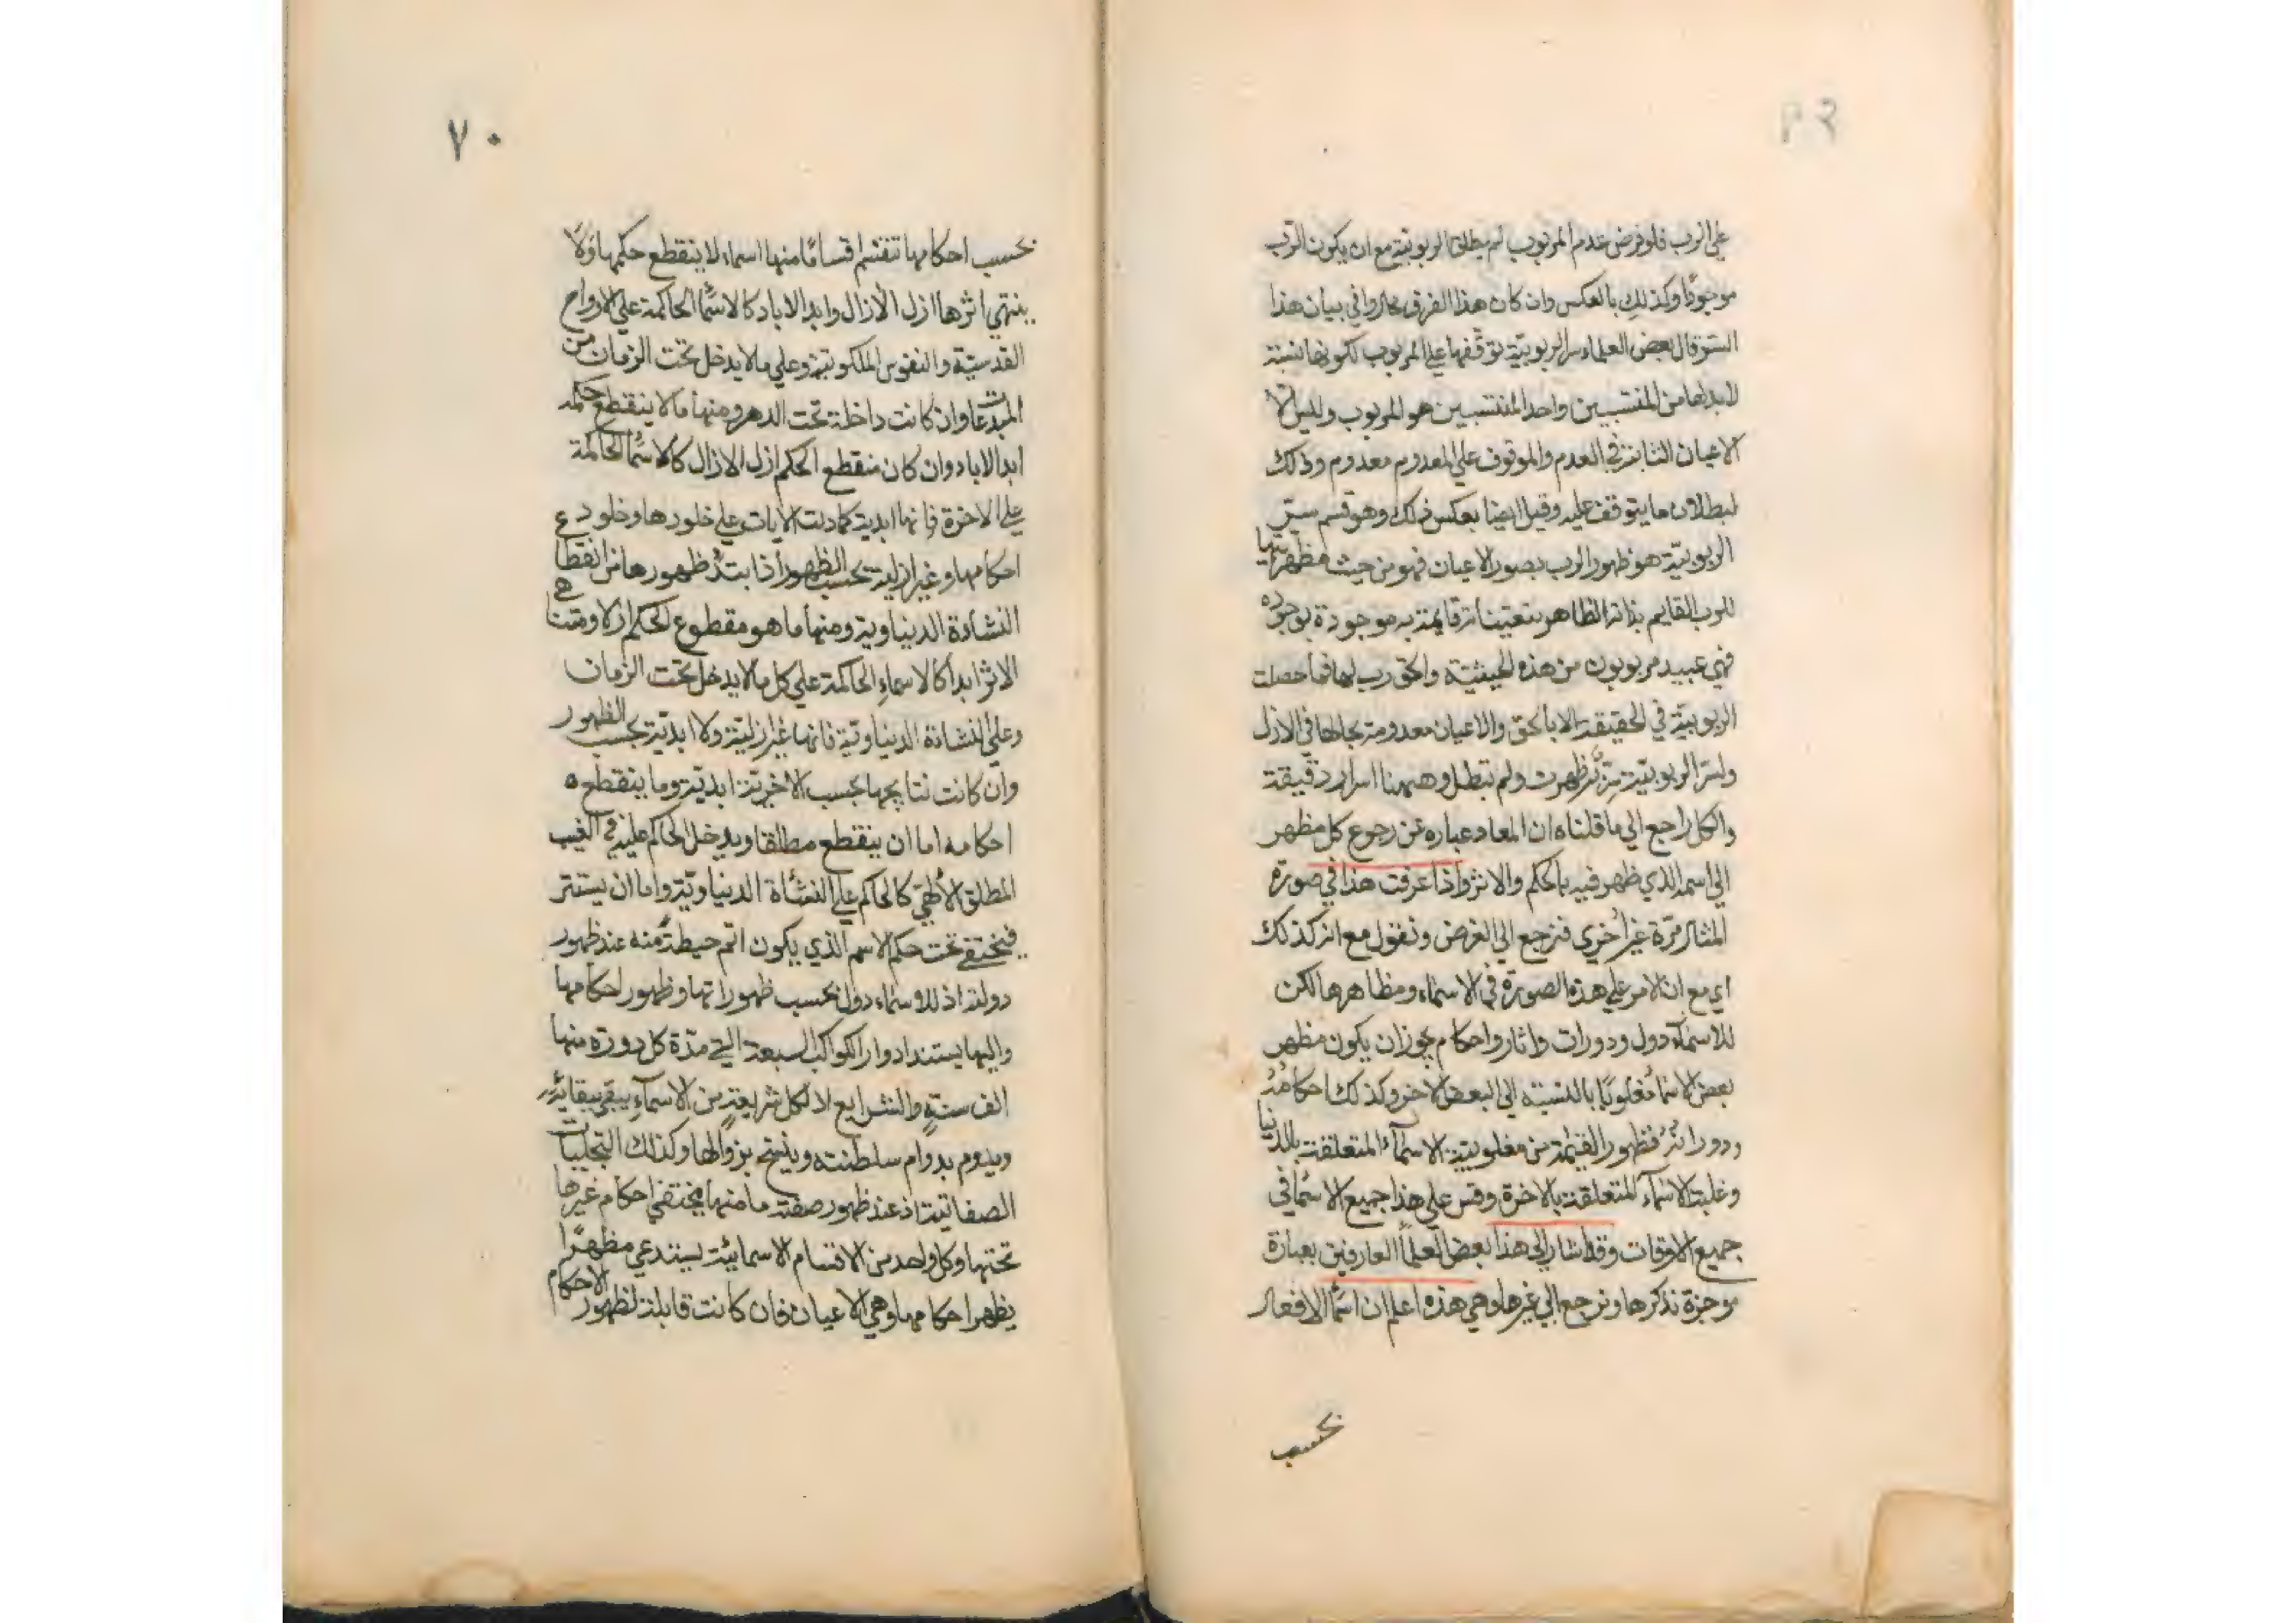 على الرب فلو فرض عدم المربوب لم يطلق الربوبية مع ان يكون الرب
موجودًا وكذلك بالعكس وان كان هذا الفرق محاروا في بيان هذا
الستر قال بعض العلماء سر الربوبيّة توقفها على المربوب لكونها نسبة
لابد لها من المنتسبين واحد المنتسبين هو المربوب وليس الا
الاعيان الثابتة في العدم والموقوف على المعدوم معدوم وذلك
لبطلان ما يتوقف عليه وقيل ايضا بعكس ذلك وهو قسم سرّ
الربوبيّة هو ظهور الرب بصور الاعيان فهو من حيث مظهريتها
للرب القايم بذاته الظاهر بتعيناته قايمة به موجودة بوجوده
فهي عبيد مربوبون من هذه الحيثية والحق رب لها فما حصلت
الربوبيّة في الحقيقة الا بالحق والاعيان معدومة بحالها في الازل
ولسر الربوبيّة سرّ ظهرت ولم تبطل وههنا اسرار دقيقة
والكل راجع الي ما قلناه ان المعاد عباره عن رجوع كل مظهر
الي اسمه الذي ظهر فيه بالحكم والاثر واذا عرفت هذا في صورة
المثال مرّة غير أخري فنرجع الي الغرض ونقول مع انه كذلك
اي مع ان الامر علي هذه الصورة في الاسماء ومظاهرها لكن
للاسماء دول ودورات واثار واحكام يجوز ان يكون مظهر
بعض الاسماء مغلوبًا بالنسبة الي البعض الاخر وكذلك احكامُهُ
ودوراتُهُ فظهور القيٰمة من مغلوبيّة الاسمآء المتعلقة بالدنيا
وغلبة الاسمآء المتعلقة بالاخرة وقس علي هذا جميع الاسمٰا في
جميع الاوقات وقد اشار الي هذا بعض العلمآ العارفين بعبارة
موجزة نذكرها ونرجع الي غيرها وهي هذه اعلم ان اسمٰا الافعال
بحسب
٧٠
بحسب احكامها تنقسم اقسامًا منها اسماء لا ينقطع حكمها ولا
ينتهي اثرها ازل الأزال وابد الاباد كالاسمٰا الحاكمة علي الارواح
القدسيّة والنفوس الملكوتية وعلي ما لا يدخل تحت الزمان من
المبدعات وان كانت داخلة تحت الدهر ومنها ما لا ينقطع حكمه
ابد الاباد وان كان منقطع الحكم ازل الازال كالاسمٰا الحاكمة
على الاخرة فانها ابدية كما دلت الايات علي خلودها وخلود ع
احكامها وغير ازلية بحسب الظهور اذا ابتدُ ظهورها من انقطاع
النشاءة الدنياوية ومنها ما هو مقطوع الحكم ازلا ومتناهي
الاثر ابدا كالاسماءِ الحاكمة علي كل ما لا يدخل تحت الزمان
وعلى النشاءة الدنياويّة فانها غير ازليّة ولا ابديّة بحسب الظهور
وان كانت نتايجها بحسب الأخرية ابديّة وما ينقطع ٥
احكامه اما ان ينقطع مطلقا ويدخل الحاكم عليه في الغيب
المطلق الألٰهيّ كالحاكم علي النشأة الدنياويّة واما ان يستتر
فيختفي تحت حكم الاسم الذي يكون اتم حيطةً منه عند ظهور
دولته اذ للاسماء دول بحسب ظهوراتها وظهور احكامها
واليها يستند ادوار الكواكب السبعة التي مدّة كل دورة منها
الف سنةٍ والشرايع لا لكل شريعةٍ من الاسمآءِ يبقي ببقائه
ويدوم بدوام سلطنته وينفتح بزوالها وكذلك التجليات
الصفاتيّة اذ عند ظهور صفة ما منها يختفي احكام غيرها
تحتها وكل واحد من الاقسام الاسمائيّة يستدعي مظهرًا
يظهر احكامها وهي الاعيان فان كانت قابلة لظهور الاحكام